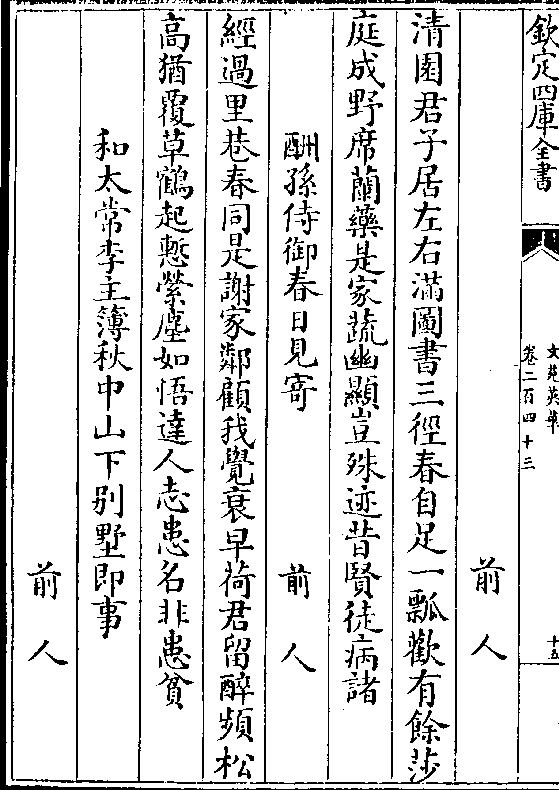 欽定四庫全書
文苑英華
卷二百四十三
十五
前人
清園君子居左右滿圖書三徑春自足一瓢歡有餘莎
庭成野席蘭藥是家蔬幽顯豈殊迹昔賢徒病諸
酬孫侍御春日見寄
前人
經過里巷春同是謝家鄰顧我覺衰早荷君留醉頻松
高猶覆草鶴起慙縈塵如悟達人志患名非患貧
和太常李主簿秋中山下别墅即事
前人